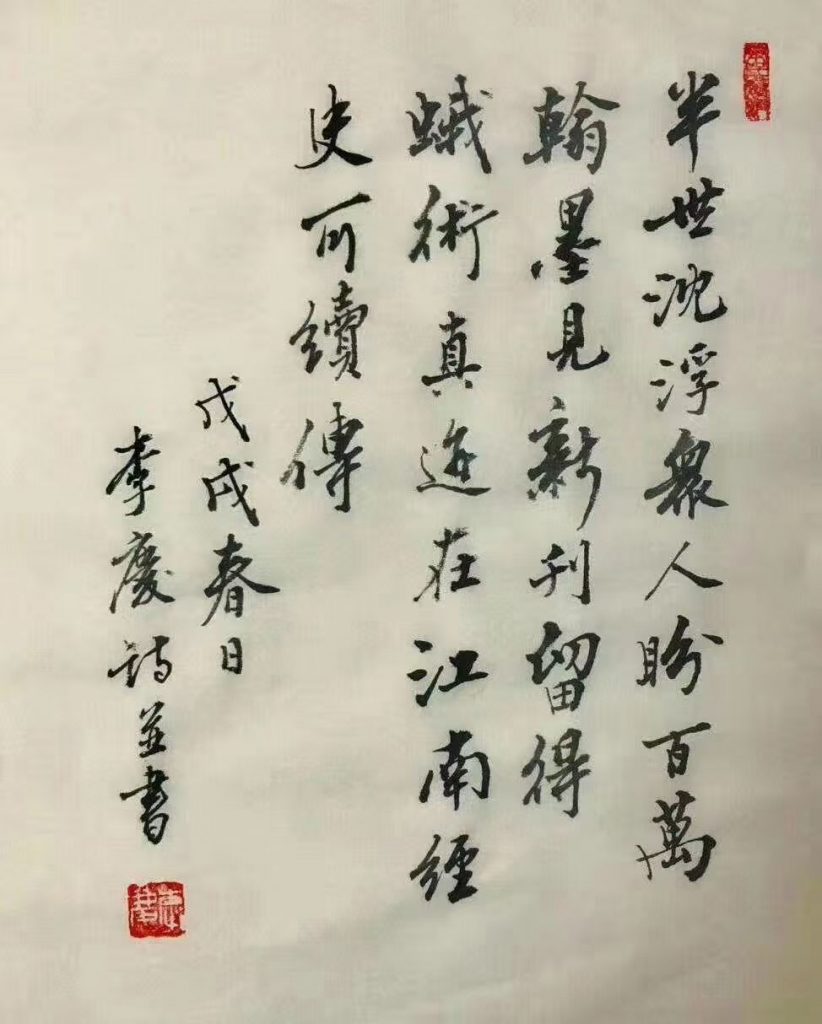 半世沈浮衆人盼百萬
翰墨見新刊留得
蛾術真迹在江南經
史可續傳
戊戌春日
李慶詩並書